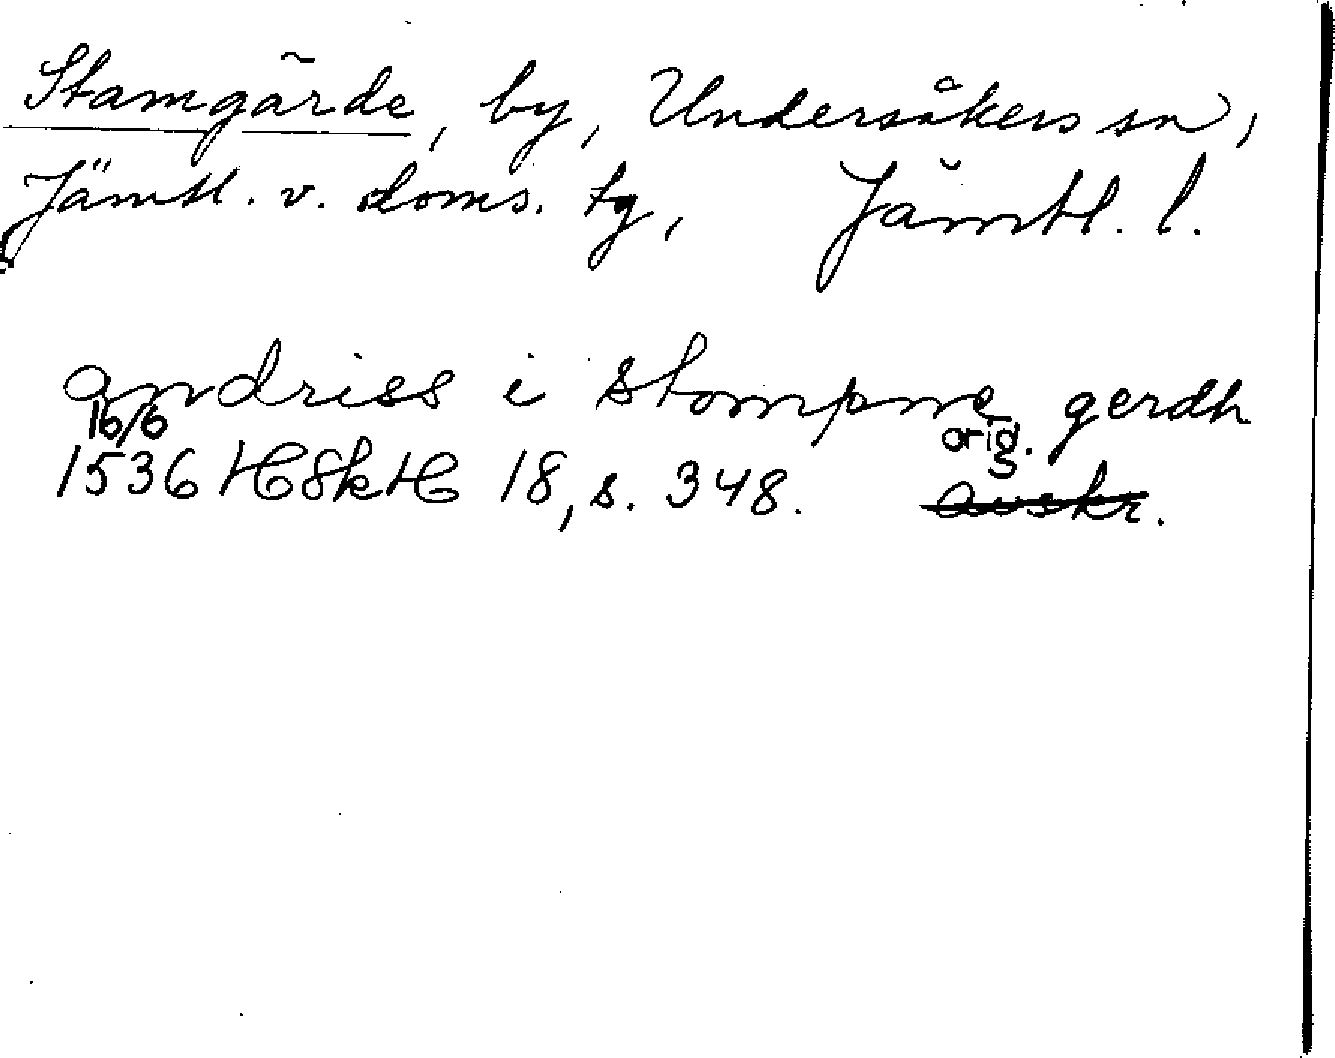 Stamgärde, by, Undersåkers sn,
Jämtl. v. doms. tg, Jämtl. l.
andriss i stompne gerdh
16/6 orig.
1536 HSkH 18, s. 348. avskr.